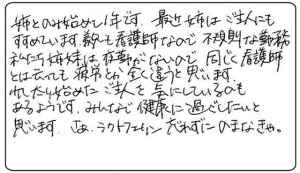 姉とのみ始めし1年です。最近姉はご主人にも
すすめています。数も看護師なので不規則な勤務
私たち姉妹は夜勤がないので同じく看護師
とは云っても疲労とが全く違うと思います。
忙しかり始めたご主人を気にしているのも
あるようです。みんなで健康に過ごしたいと
思います。さぁ、ラクトフェリン忘れずにのまなきゃ。